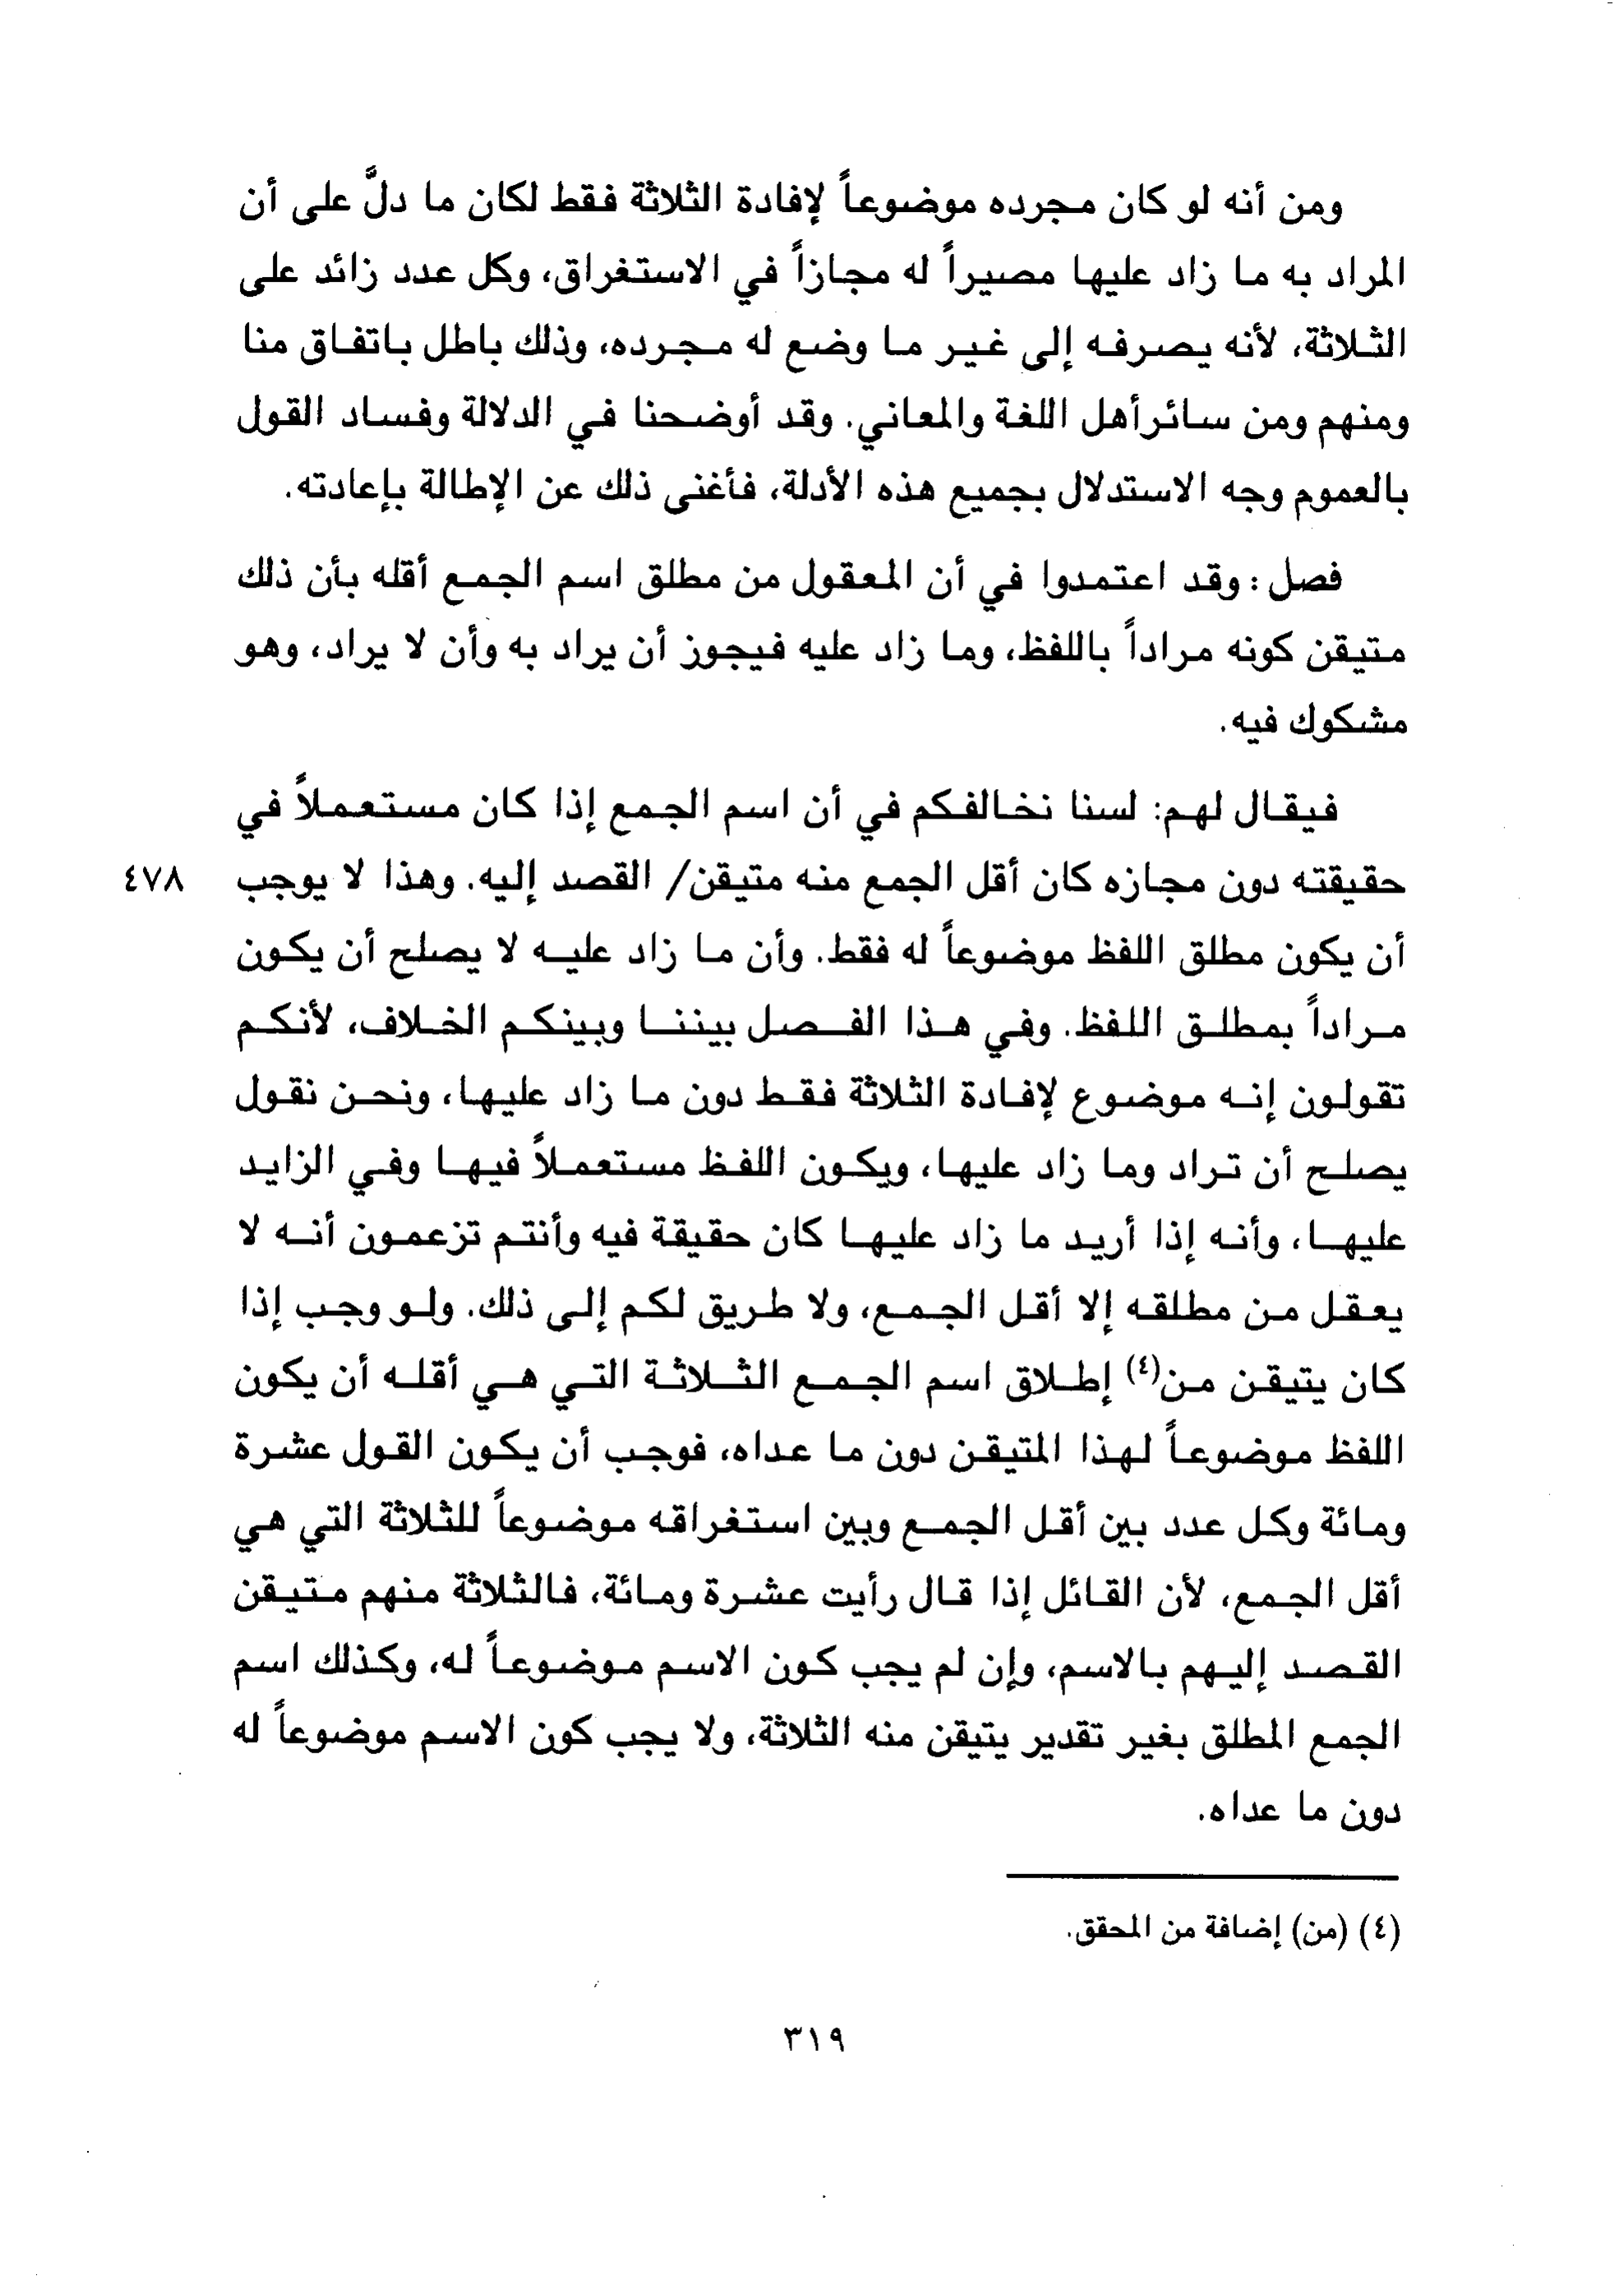 ومن أنه لو كان مجرده موضوعاً لإفادة الثلاثة فقط لكان ما دلَّ على أن
المراد به ما زاد عليها مصيراً له مجازاً في الاستغراق، وكل عدد زائد على
الثلاثة، لأنه يصرفه إلى غير ما وضع له مجرده، وذلك باطل باتفاق منا
ومنهم ومن سائر أهل اللغة والمعاني. وقد أوضحنا في الدلالة وفساد القول
بالعموم وجه الاستدلال بجميع هذه الأدلة، فأغنى ذلك عن الإطالة بإعادته.
فصل: وقد اعتمدوا في أن المعقول من مطلق اسم الجمع أقله بأن ذلك
متيقن كونه مراداً باللفظ، وما زاد عليه فيجوز أن يراد به وأن لا يراد، وهو
مشكوك فيه.
فيقال لهم: لسنا نخالفكم في أن اسم الجمع إذا كان مستعملاً في
حقيقته دون مجازه كان أقل الجمع منه متيقن/ القصد إليه. وهذا لا يوجب ٤٧٨
أن يكون مطلق اللفظ موضوعاً له فقط. وأن ما زاد عليه لا يصلح أن يكون
مراداً بمطلق اللفظ. وفي هذا الفصل بيننا وبينكم الخلاف، لأنكم
تقولون إنه موضوع لإفادة الثلاثة فقط دون ما زاد عليها، ونحن نقول
يصلح أن تراد وما زاد عليها، ويكون اللفظ مستعملاً فيها وفي الزايد
عليها، وأنه إذا أريد ما زاد عليها كان حقيقة فيه وأنتم تزعمون أنه لا
يعقل من مطلقه إلا أقل الجمع، ولا طريق لكم إلى ذلك. ولو وجب إذا
كان يتيقن من(٤) إطلاق اسم الجمع الثلاثة التي هي أقله أن يكون
اللفظ موضوعاً لهذا المتيقن دون ما عداه، فوجب أن يكون القول عشرة
ومائة وكل عدد بين أقل الجمع وبين استغراقه موضوعاً للثلاثة التي هي
أقل الجمع، لأن القائل إذا قال رأيت عشرة ومائة، فالثلاثة منهم متيقن
القصد إليهم بالاسم، وإن لم يجب كون الاسم موضوعاً له، وكذلك اسم
الجمع المطلق بغير تقدير يتيقن منه الثلاثة، ولا يجب كون الاسم موضوعاً له
دون ما عداه.
(٤) (من) إضافة من المحقق.
٣١٩